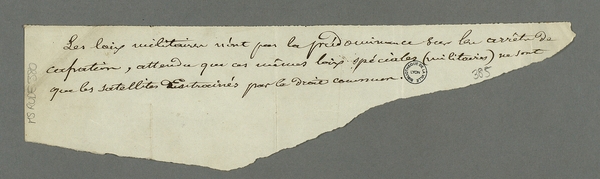 Les loix militaires n'ont pas la prédominance sur les arrêts de
cassation, attendu que ces mêmes loix spéciales (militaires) ne sont
que les satellites entrainés par le droit commun.
385
MS RUDE 530